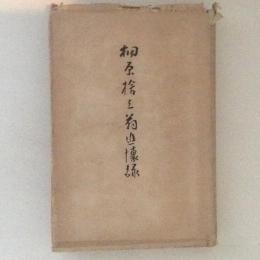 桐原捨三翁追懐録